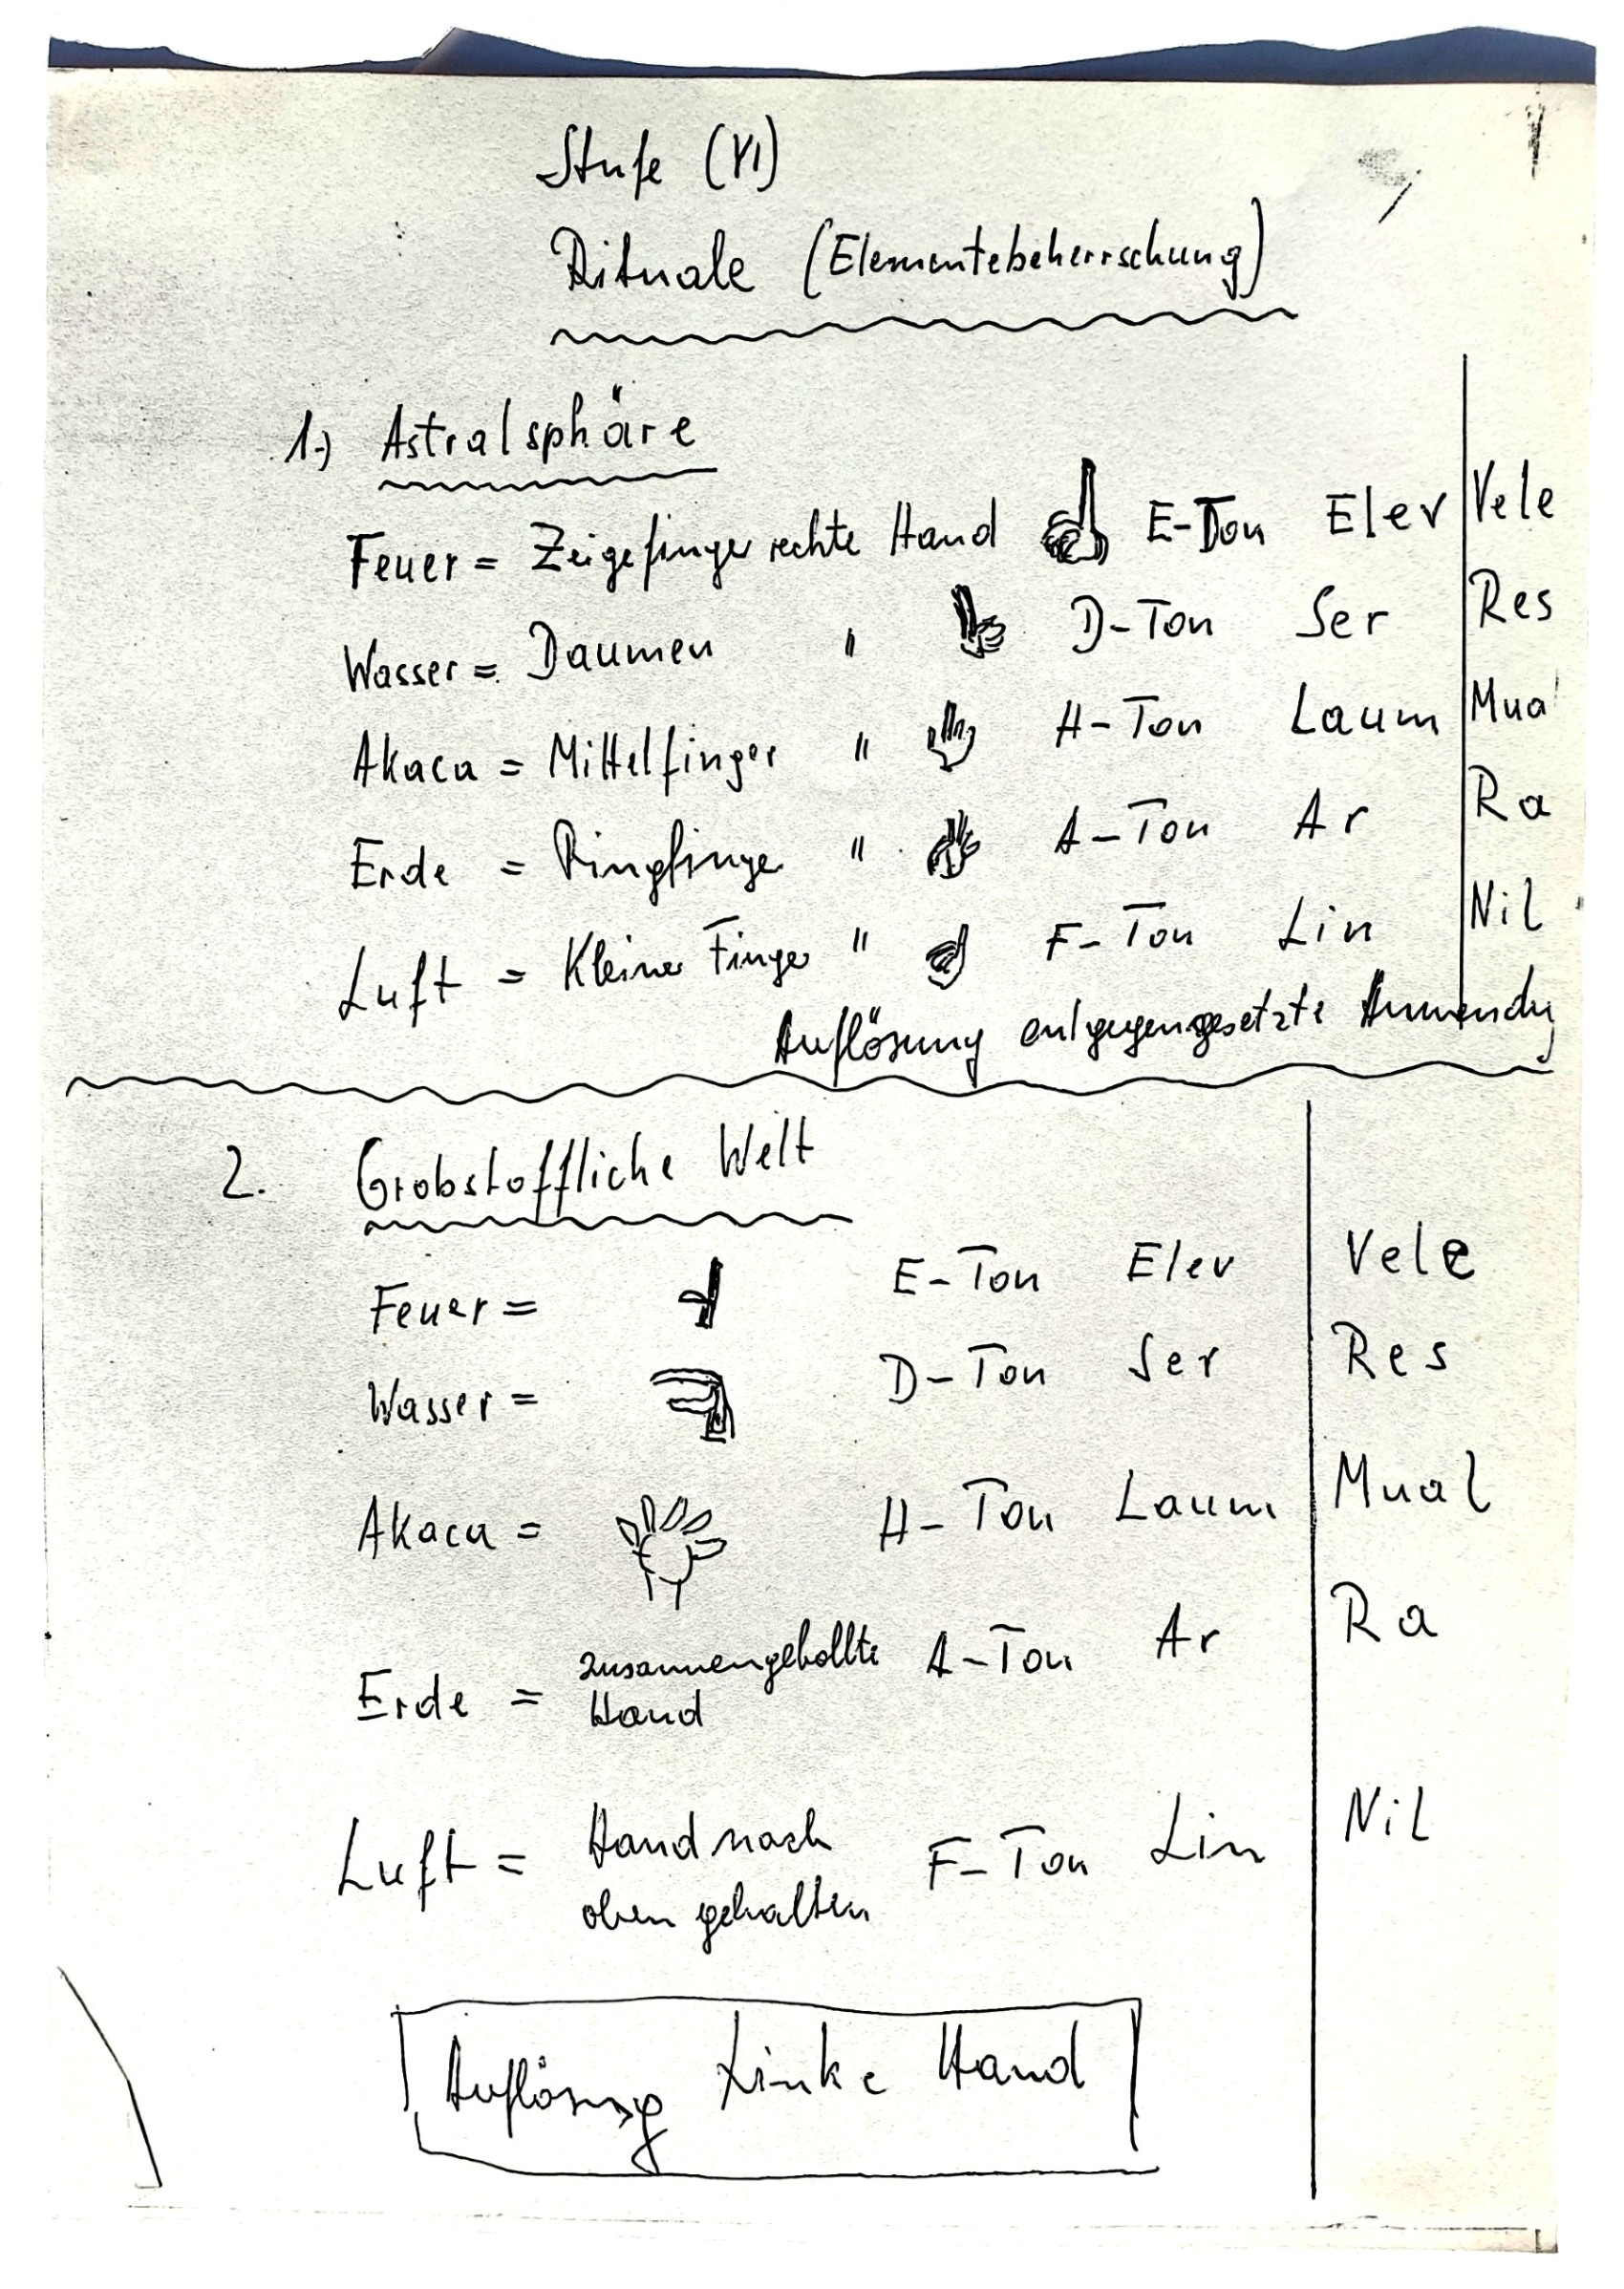 Stufe (VI)
Rituale (Elementebeherrschung)
1.) Astralsphäre
Feuer = Zeigefinger rechte Hand E-Ton Elev Vele
Wasser = Daumen " D-Ton Ser Res
Akaca = Mittelfinger " H-Ton Laum Mua
Erde = Ringfinger " A-Ton Ar Ra
Luft = Kleiner Finger " F-Ton Lin Nil
Auflösung entgegengesetzte Anwendung
2. Grobstoffliche Welt
Feuer = E-Ton Elev Vele
Wasser = D-Ton Ser Res
Akaca = H-Ton Laum Mual
Erde = zusammengebollte A-Ton Ar Ra
Hand
Luft = Hand nach F-Ton Lin Nil
oben gehalten
Auflösung Linke Hand